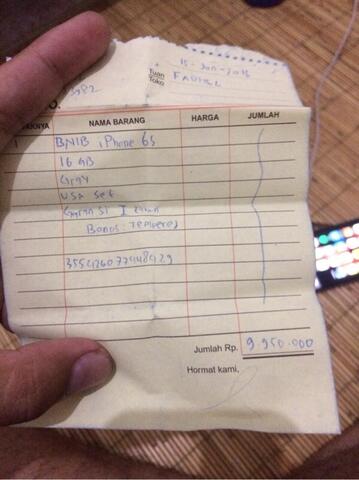 15-Jan-2016
Tuan
Toko
3982
O.
AKNYA NAMA BARANG HARGA JUMLAH
1 BNIB iPhone 6s
16 GB
Gray
USA Set
Garansi 1 tahun
Bonus: Tempered
355426077448429
Jumlah Rp. 9.950.000
Hormat kami,